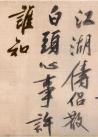 江湖儔侶散
白頭心事許
誰知